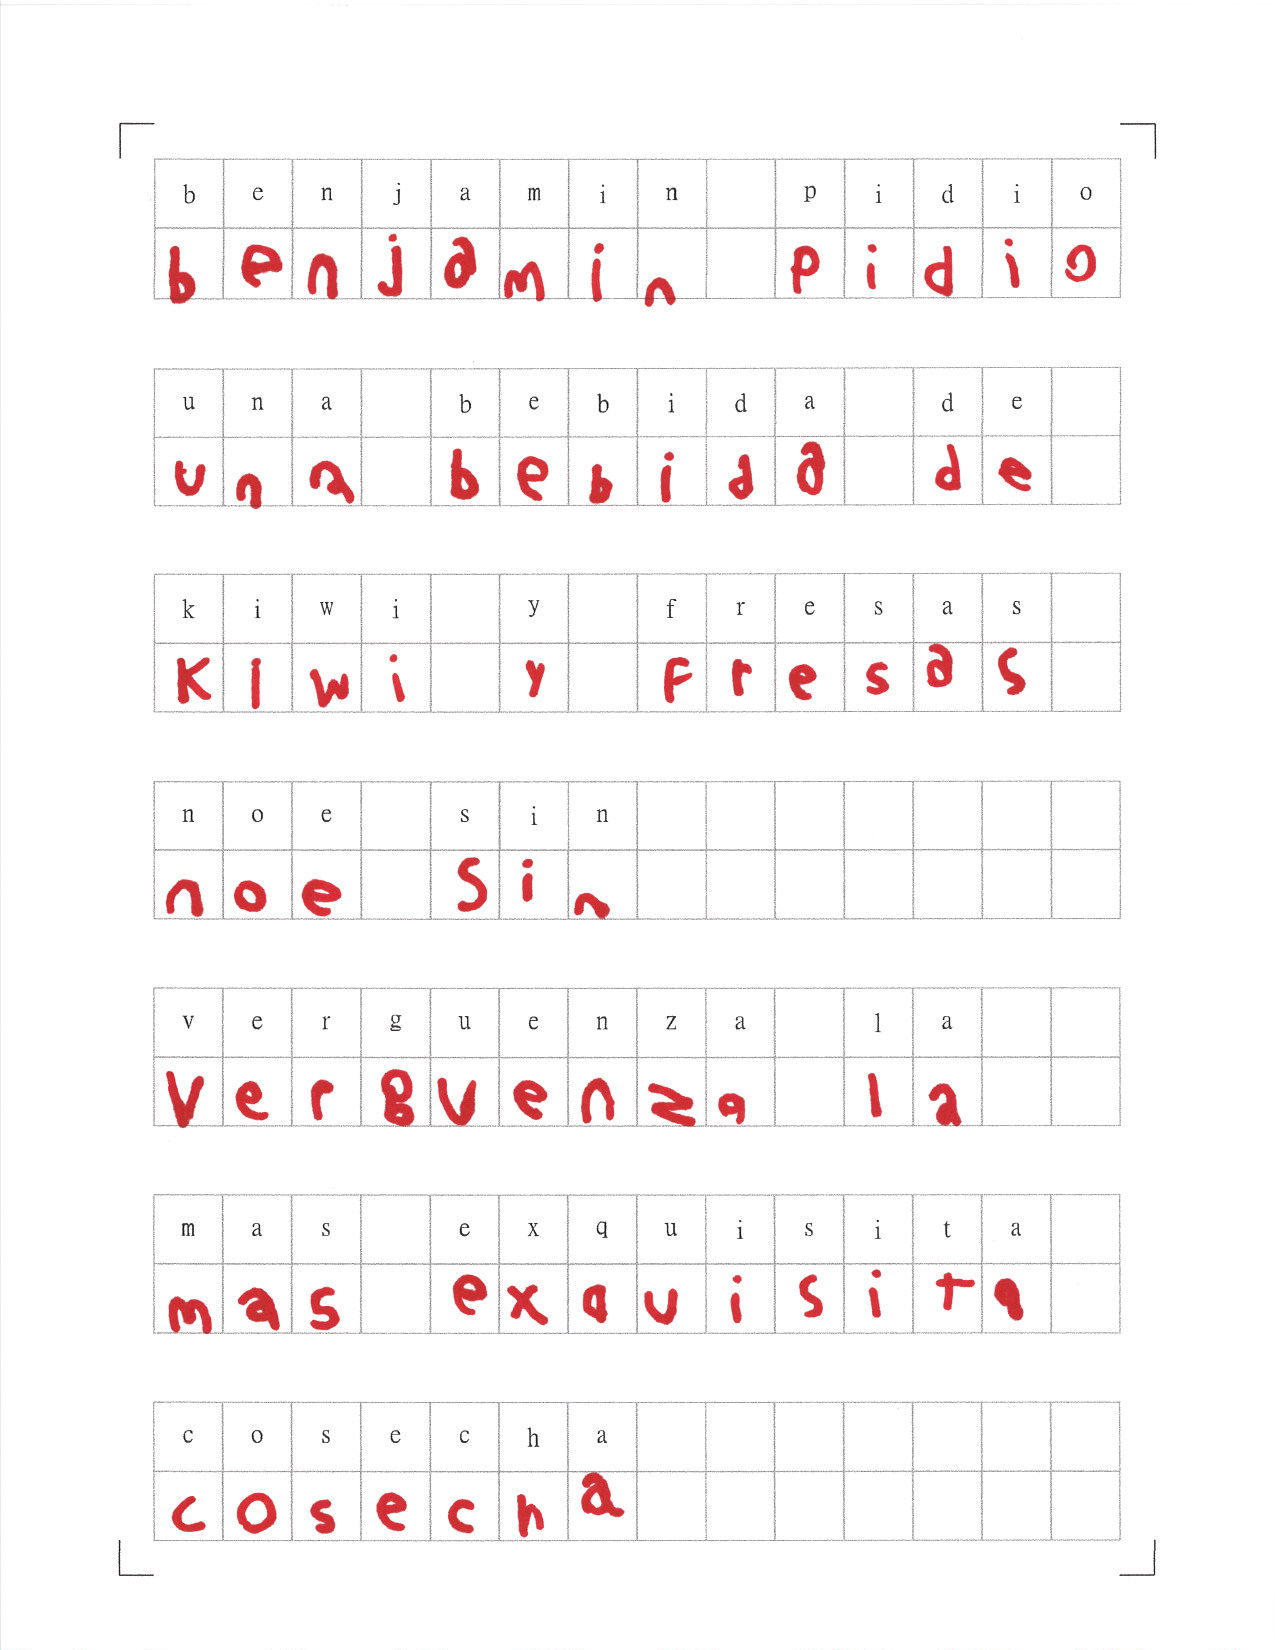 benjamin pidio
benjamin pidio
una bebida de
una bebida de
kiwi y fresas
Kiwi y Fresas
noe sin
noe Sin
verguenza la
Verguenza la
mas exquisita
mas exquisita
cosecha
cosecha